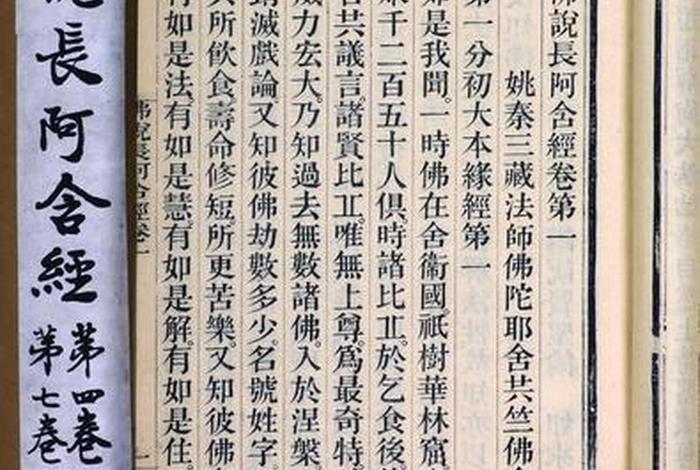 佛說長阿含經卷第一
姚秦三藏法師佛陀耶舍共竺佛
第一分初大本緣經第一
如是我聞。一時佛在舍衞國。祇樹華林窟
千二百五十人俱。時諸比丘。於乞食後
共議言。諸賢比丘。唯無上尊。爲最奇特。
威力宏大。乃知過去無數諸佛。入於涅槃
滅戲論。又知彼佛劫數多少。名號姓字。
所飲食。壽命修短。所更苦樂。又知彼佛
有如是法。有如是慧。有如是解。有如是住。
佛說長阿含經卷一
長阿含經
第四卷
第七卷